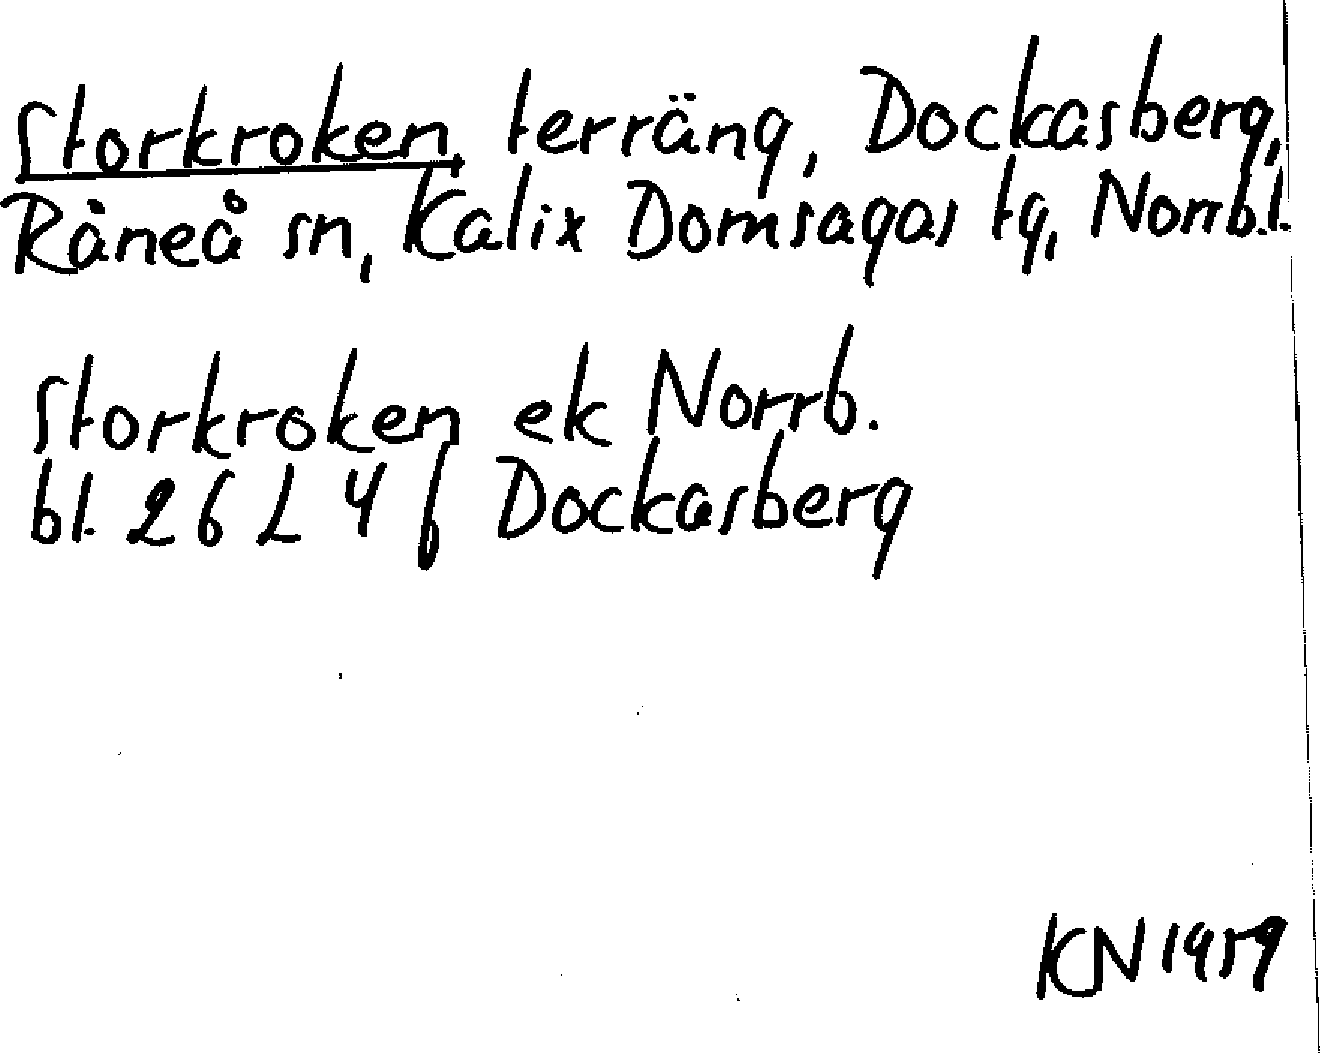 Storkroken, terräng, Dockasberg,
Råneå sn, Kalix Domsagas tg, Norrb.l.
Storkroken ek Norrb.
bl. 26 L 4 f Dockasberg
KN 1959